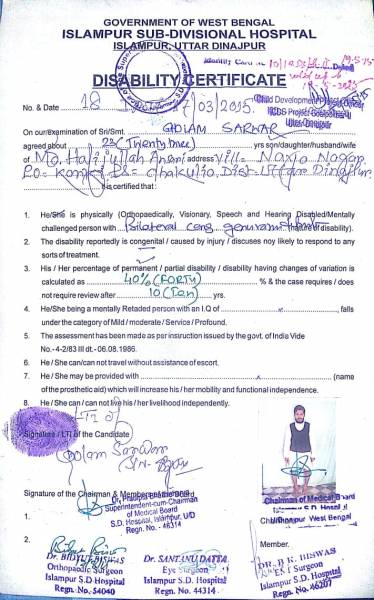 GOVERNMENT OF WEST BENGAL
ISLAMPUR SUB-DIVISIONAL HOSPITAL
ISLAMPUR, UTTAR DINAJPUR
Identity Card No
DISABILITY CERTIFICATE
No. & Date 18 /03/2015.
Child Development Project Officer
ICDS Project Goalpokhar-II
Uttar Dinajpur
On our/examination of Sri/Smt. GOLAM SARWAR
agreed about 23 (Twenty three) yrs son/daughter/husband/wife
of Md. Hafijullah Ansari address Vill- Naxia Nagar
P.O= Kanki P.S= Chakulia, Dist-Uttar Dinajpur.
It is certified that :
1. He/She is physically (Orthopaedically, Visionary, Speech and Hearing Disabled/Mentally
challened person with Bilateral cong. genuvarum (nature of disability).
2. The disability reportedly is congenital / caused by injury / discuses noy likely to respond to any
sorts of treatment.
3. His / Her percentage of permanent / partial disability / disability having changes of variation is
calculated as 40% (FORTY) % & the case requires / does
not require review after 10 (Ten) yrs.
4. He/She being a mentally Retaded person with an I.Q of x , falls
under the category of Mild / moderate / Service / Profound.
5. The assessment has been made as per insruction issued by the govt. of India Vide
No.-4-2/83 III dt.-06.08.1986.
6. He / She can/can not travel without assistance of escort.
7. He / She may be provided with x (name
of the prosthetic aid) which will increase his / her mobility and functional independence.
8. He / She can / can not live his / her livelihood independently.
LTI of
Signature / LTI of the Candidate
Golam Sarwar
Signature of the Chairman & Member of the Board
Superintendent-cum-Chairman
of Medical Board
S.D. Hospital, Islampur, U/D
Regn. No. - 46314
Chairman of Medical Board
Islampur S.D. Hospital
Uttar Dinajpur West Bengal
1.
2.
Member.
Dr. BIDYUT BISWAS
Orthopaedic Surgeon
Islampur S.D Hospital
Regn. No. 54040
Dr. SANTANU DATTA
Eye Surgeon
Islampur S.D. Hospital
Regn. No. 44314
DR. D.K. BISWAS
ENT Surgeon
Islampur S.D. Hospital
Regn. No. 46207